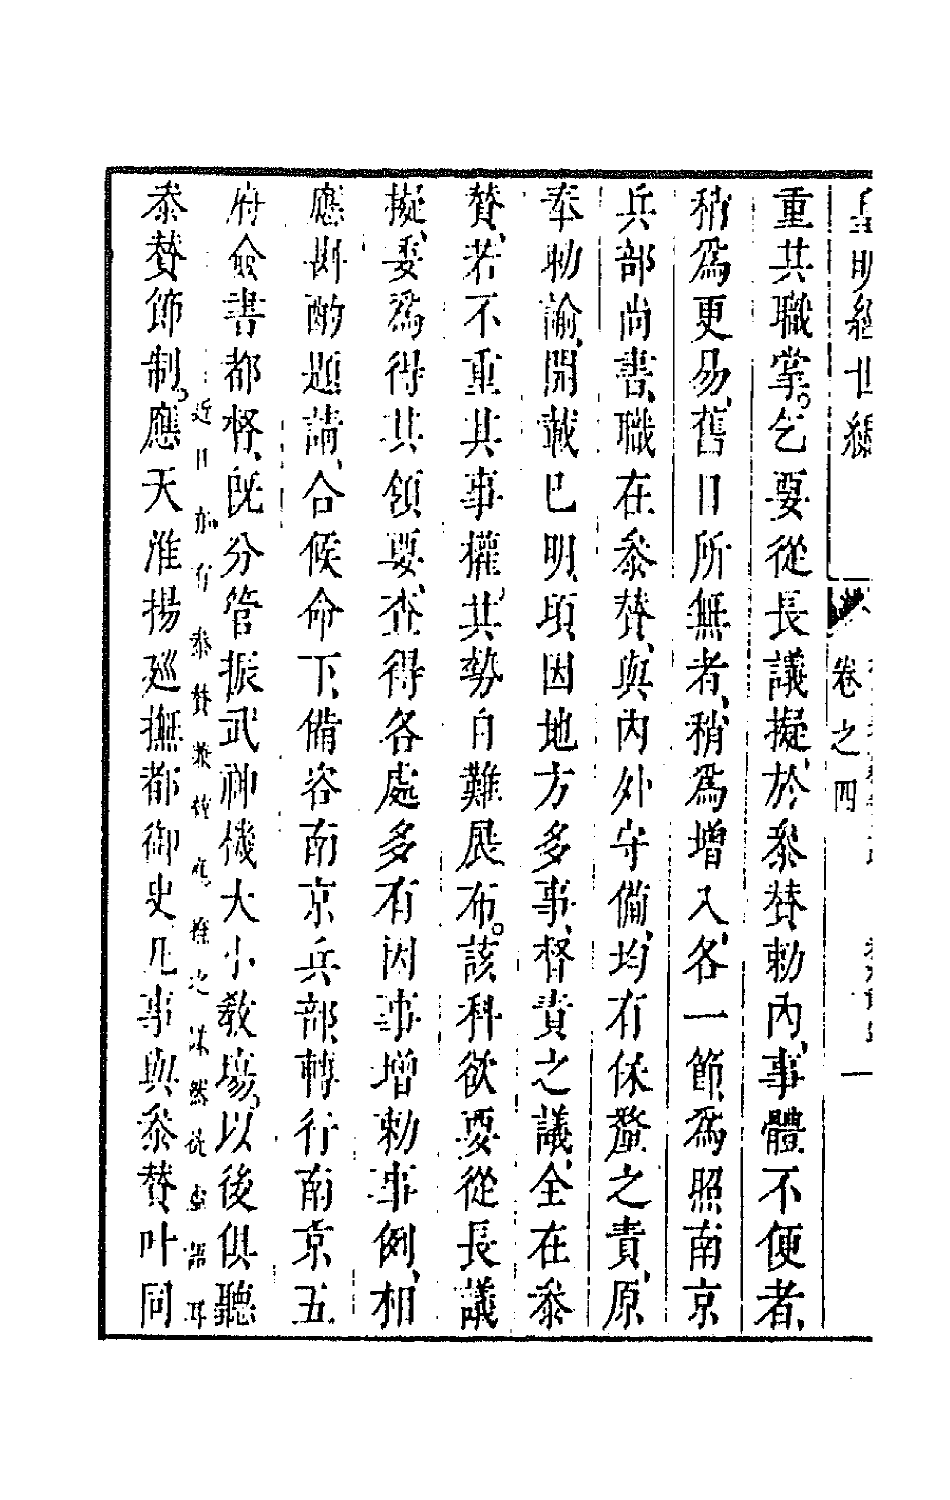 皇明經世編
卷之四
一
重其職掌。乞要從長議擬、於叅賛勅內、事體不便者、
稍爲更易、舊日所無者、稍爲增入、各一節、爲照南京
兵部尚書、職在叅賛、與內外守備、均有保釐之責、原
奉勅諭、開載已明、頃因地方多事、督責之議、全在叅
賛、若不重其事權、其勢自難展布。該科欲要從長議
擬、委爲得其領要、查得各處多有因事增勅事例、相
應斟酌題請、合候命下、備咨南京兵部、轉行南京五
府僉書都督、旣分管振武神機大小敎塲、以後俱聽
近日加有叅賛兼
之
然
虛
耳
叅賛節制。應天淮揚廵撫都御史凡事與叅賛叶同